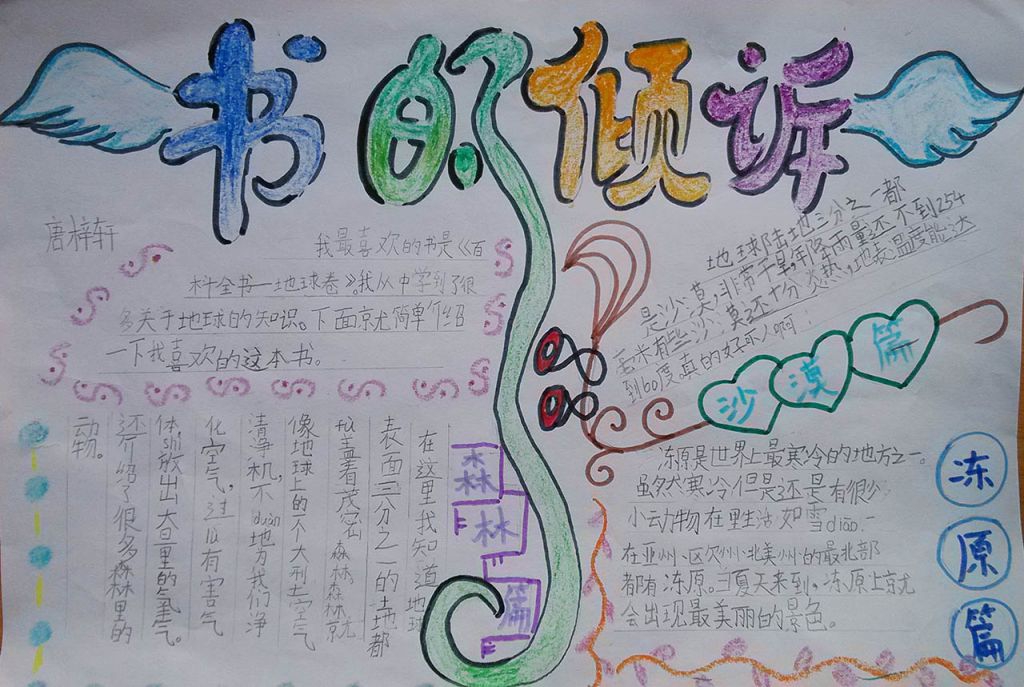 书的倾诉
唐梓轩
我最喜欢的书是《百
科全书—地球卷》。我从中学到了很
多关于地球的知识。下面就简单介绍
一下我喜欢的这本书。
森
林
篇
在这里我知道地球
表面三分之一的土地都
fù盖着茂密森林,森林就
像地球上的个大型空气
清净机,不duàn地为我们净
化空气,过滤有害气
体,shì放出大量的氧气。
还介绍了很多森林里的
动物。
地球陆地三分之一都
是沙漠,非常干旱,年降雨量还不到254
毫米有些沙漠还十分炎热,地表温度能达
到60度真的好吓人啊!
沙漠篇
冻原是世界上最寒冷的地方之一。
虽然寒冷但是还是有很少
小动物在里生活如雪diāo.一
在亚州、区欠州、北美州的最北部
都有冻原。夏天来到,冻原上就
会出现最美丽的景色。
冻
原
篇